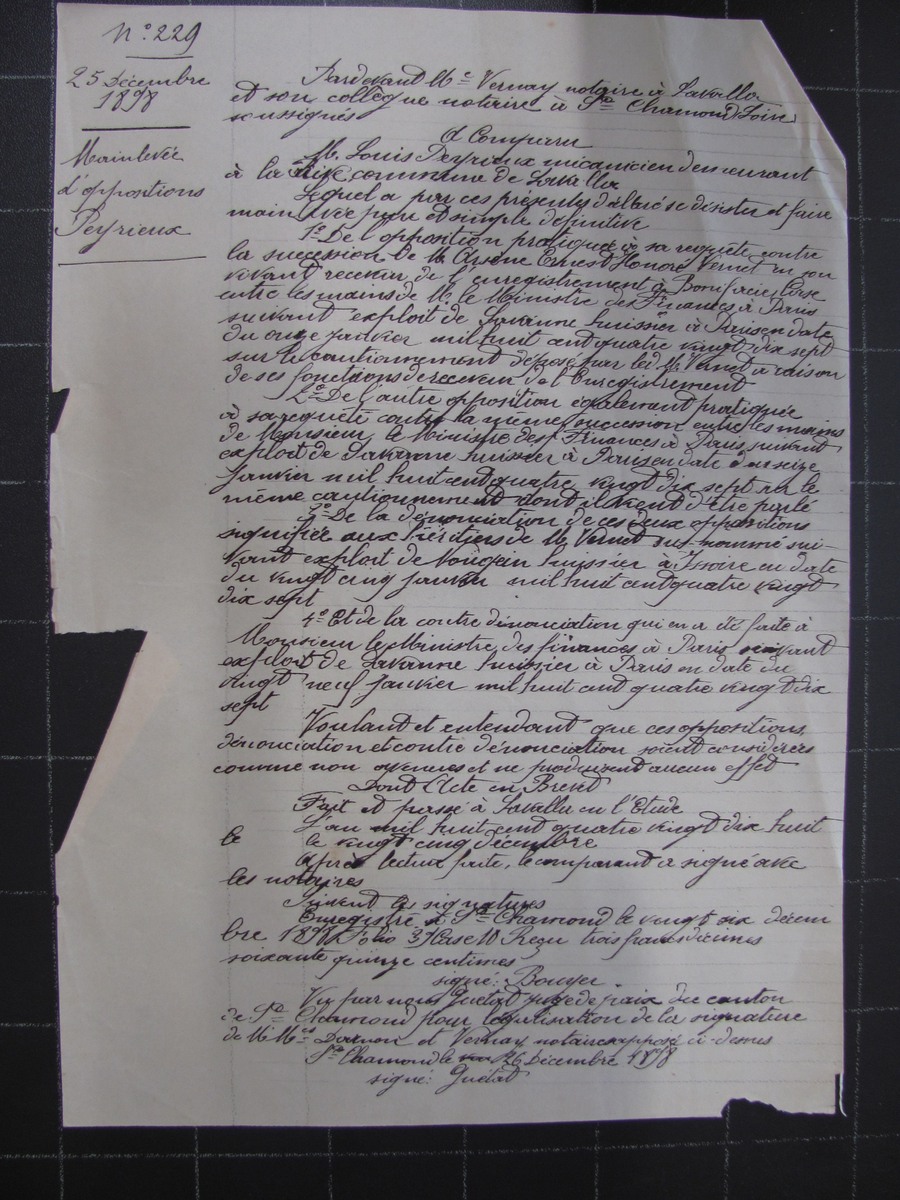 N° 229
25 Décembre
1898
Mainlevée
d'oppositions
Peyrieux
Pardevant Me Vernay notaire à Lavalla
et son collègue notaire à St Chamond (Loire)
soussignés
A Comparu
M. Louis Peyrieux mécanicien demeurant
à la Rive commune de Lavalla
Lequel a par ces présentes déclaré se désister et faire
main levée pure et simple définitive
1° De l'opposition pratiquée à sa requête contre
la succession de M. Arsène Ernest Honoré Vernet en son
vivant receveur de l'enregistrement à Bonifacio, Corse
entre les mains de M. le Ministre des Finances à Paris
suivant exploit de Lavanne huissier à Paris en date
du onze Janvier mil huit cent quatre vingt dix sept
sur le cautionnement déposé par led. M. Vernet à raison
de ses fonctions de receveur de l'Enregistrement
2° De l'autre opposition également pratiquée
à sa requête contre la même succession entre les mains
de Monsieur le Ministre des Finances à Paris suivant
exploit de Lavanne huissier à Paris en date du seize
Janvier mil huit cent quatre vingt dix sept sur le
même cautionnement dont il vient d'être parlé
3° De la dénonciation de ces deux oppositions
signifiée aux héritiers de M. Vernet sus-nommé sui-
vant exploit de huissier à Issoire en date
du vingt cinq Janvier mil huit cent quatre vingt
dix sept
4° Et de la contre dénonciation qui en a été faite à
Monsieur le Ministre des finances à Paris suivant
exploit de Lavanne huissier à Paris en date du
vingt neuf Janvier mil huit cent quatre vingt dix
sept
Voulant et entendant que ces oppositions,
dénonciation et contre dénonciation soient considérées
comme non avenues et ne produisent aucun effet
Dont Acte en Brevet
Fait et passé à Lavalla en l'Etude
L'an mil huit cent quatre vingt dix huit
le le vingt cinq décembre
Après lecture faite, le comparant a signé avec
les notaires
Suivent les signatures
Enregistré à St Chamond le vingt six décem
bre 1898 Folio 37 Case 10 Reçu trois francs décimes
soixante quinze centimes
signé: Bouyer
Vu par nous Guétat juge de paix du canton
de St Chamond pour légalisation de la signature
de M Mes et Vernay notaires apposée ci-dessus
St Chamond le 26 Décembre 1898
signé: Guétat